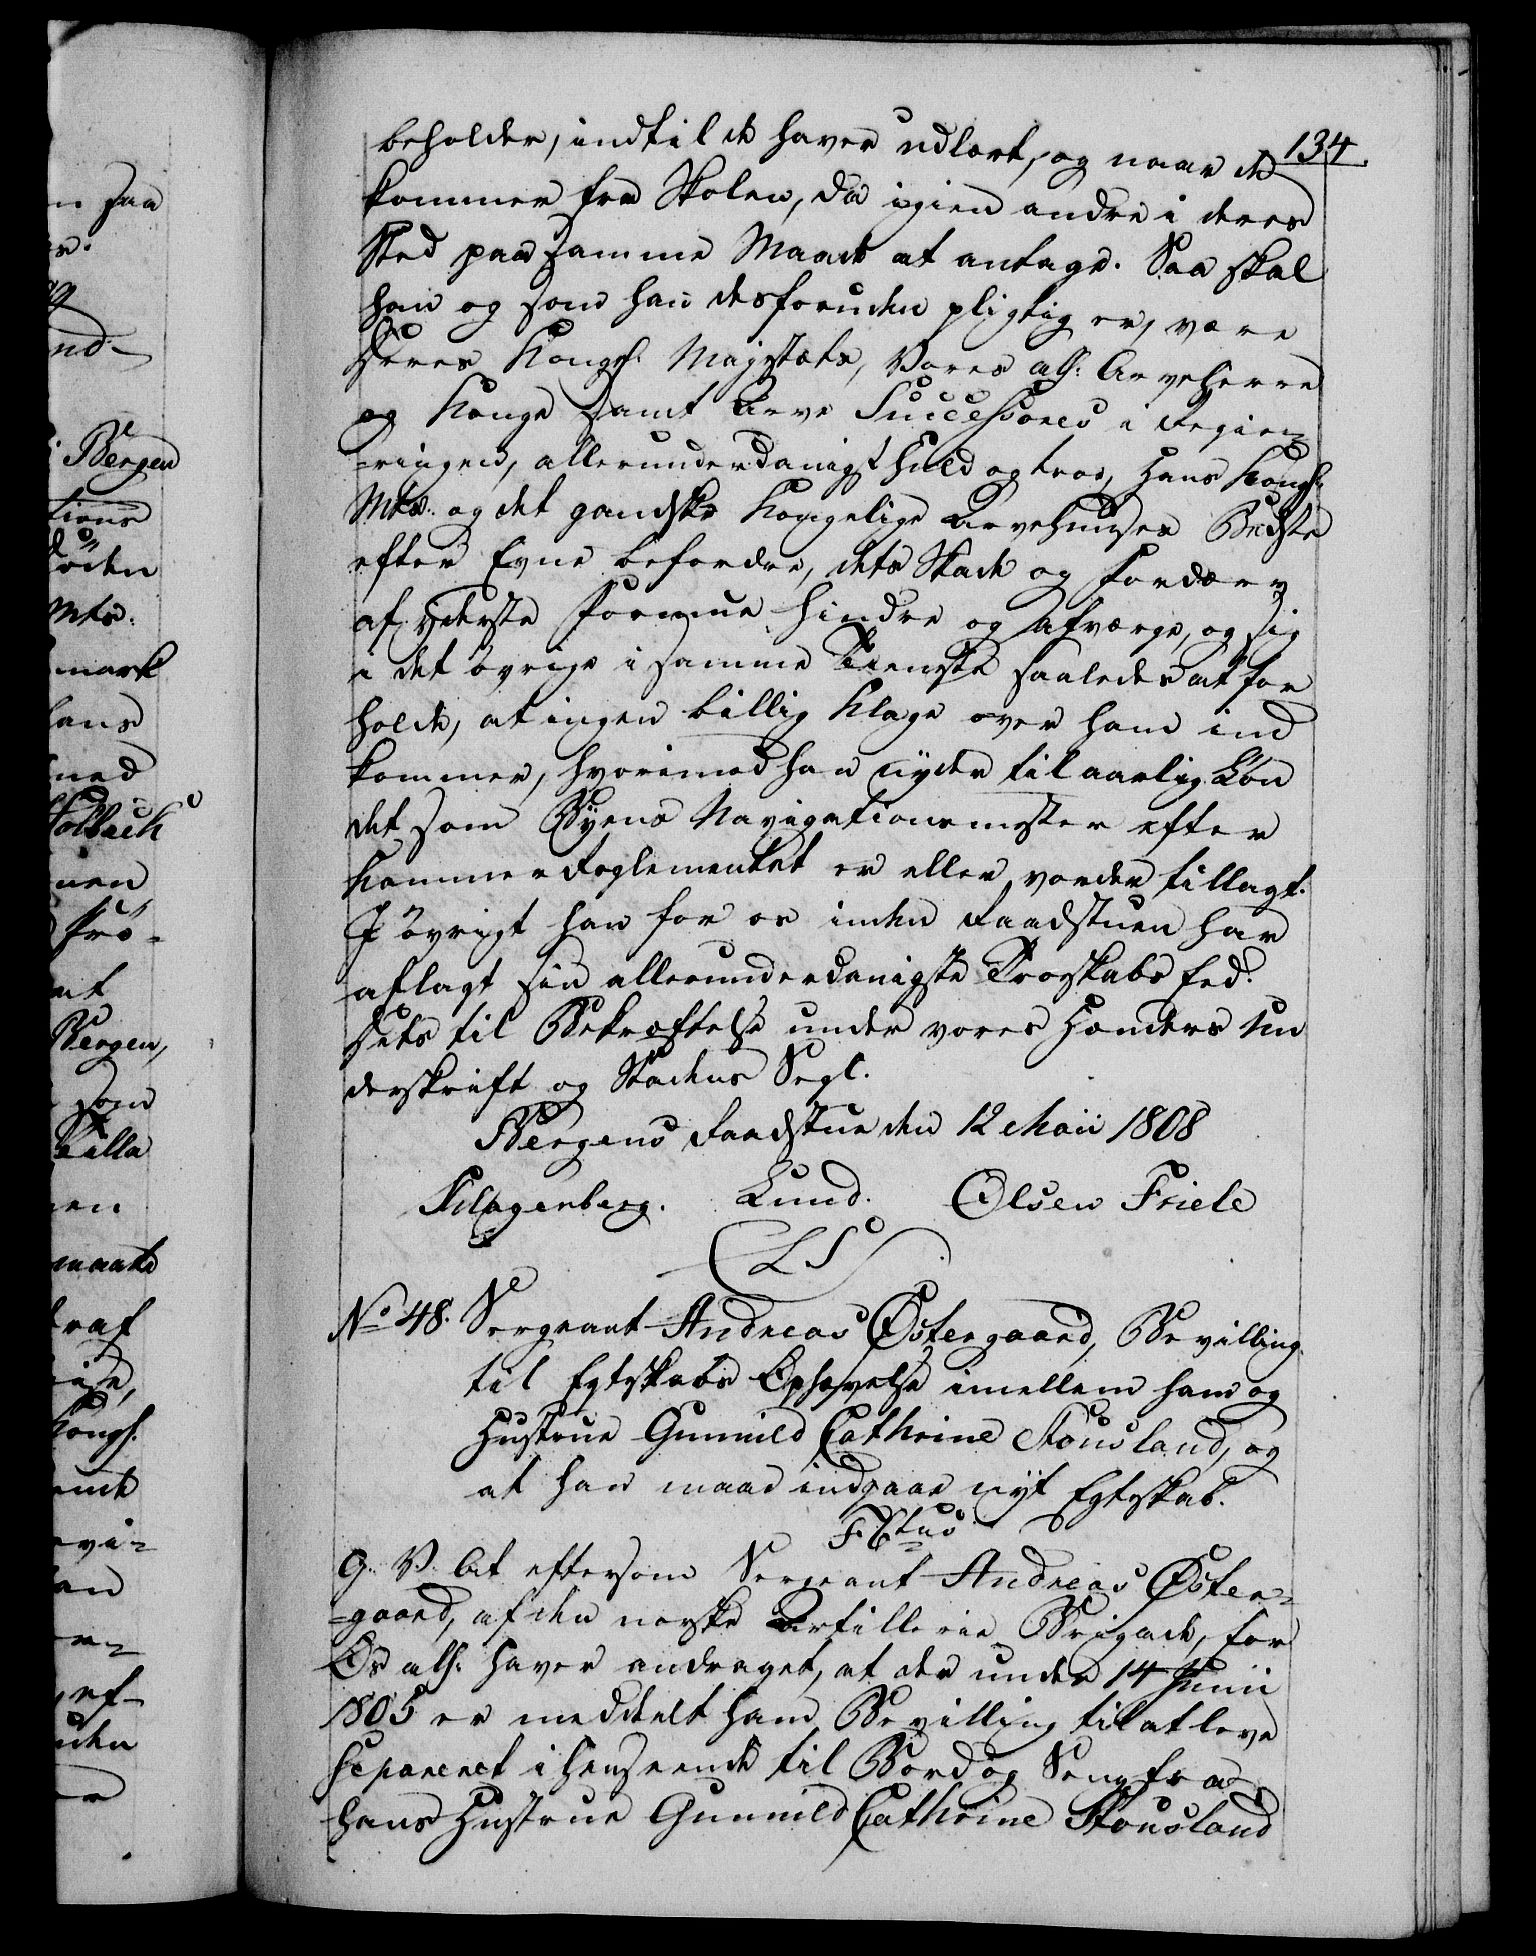 134
beholder, indtil de haver udlært, og naar de
kommer fra Skolen, da igien andre i deres
Sted paa samme Maade at antage. Saa skal
han og som han desforuden pligtig er, være
Deres Kongl: Majestæts, Vores all: Arveherre
og Konge samt Arve Successores i Regie-
=ringen, allerunderdanigst huld og troe, Hans Kongl:
Mts: og det gandske Kongelige Arvehuuses Bedste
efter Evne befordre, dets Skade og Fordærv
af yderste Formue hindre og afværge, og sig
i det övrige i samme Tieneste saaledes at for
holde, at ingen billig Klage over ham ind
kommer, hvorimod han nyder til aarlig Lön
det som Byens Navigationsmester efter
Kammer Reglementet er eller vorder tillagt.
I övrigt han for os inden Raadstuen har
aflagt sin allerunderdanigste Troskabs Eed.
Dets til Bekræftelse under vores Hænders Un
derskrift og Stadens Segl.
Bergens Raadstue den 12 Maii 1808
Klagenberg. Lund. Olsen Friele
LS
No 48. Sergeant Andreas Østergaard, Bevilling
til Egteskabs Ophævelse imellem ham og
Hustrue Gunnild Cathrine Stousland, og
at han maae indgaae nyt Egteskab.
F 6tus
G: V: At eftersom Sergeant Andreas Øster=
=gaard, af den norske Artillerie Brigade, for
Os all: haver andraget, at der under 14 Junii
1805 er meddeelt ham Bevilling til at leve
separeret i Henseende til Bord og Seng fra
hans Hustrue Gunnild Cathrine Stousland
i Bergen
tions
öden
Mts:
mark
hans
med
Holbach
Pro-
Bergen,
som
maatte
Kongl: